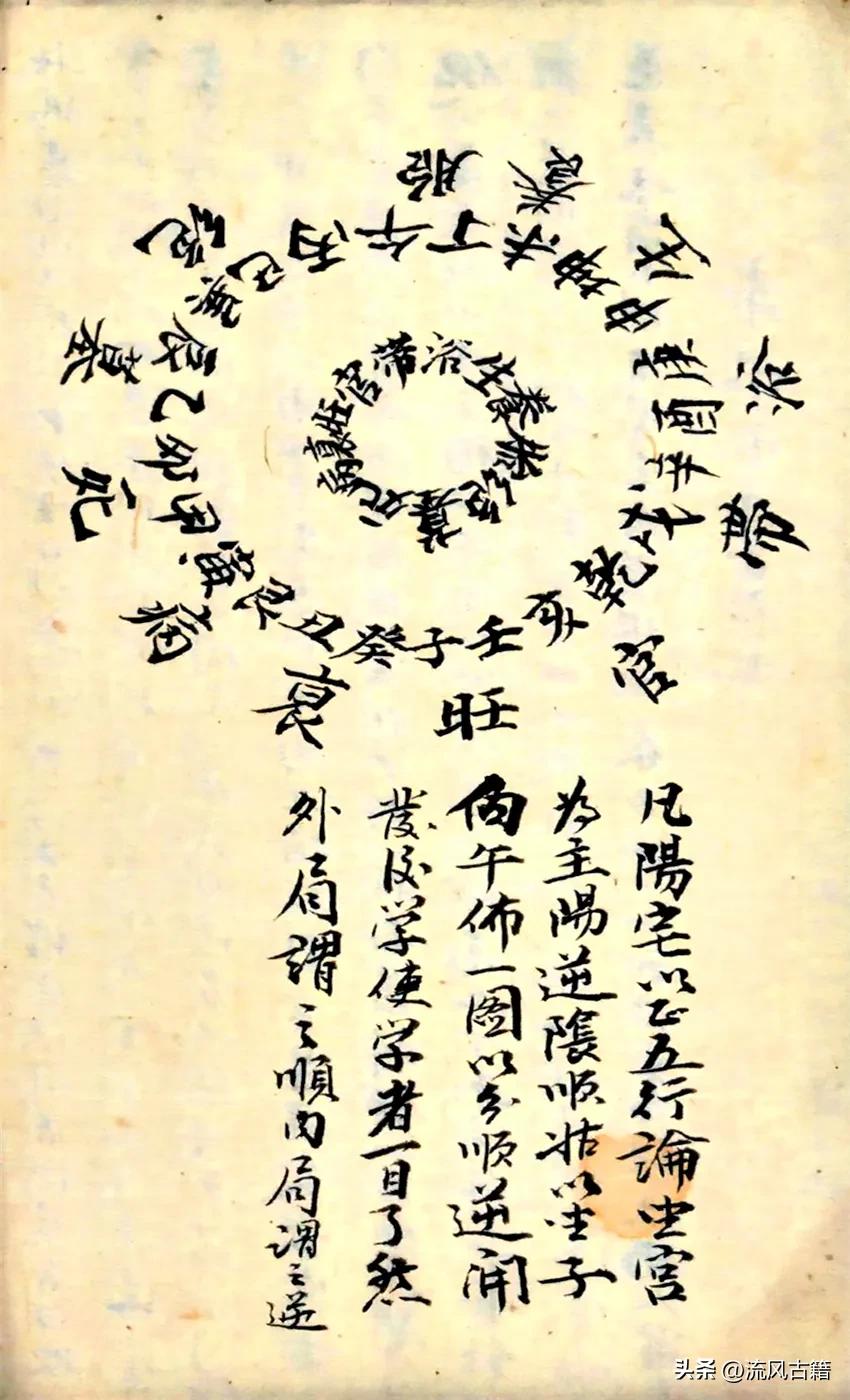 胎養生浴帶官旺衰病死墓絕
午丁未坤申庚酉辛戌乾亥壬子癸丑艮寅甲卯乙辰巽巳丙
帶浴生養胎絕墓死病衰旺官
凡陽宅以正五行論坐宮
為主陽逆陰順姑以坐子
向午佈一图以分順逆開
發後学使学者一目了然
外局謂之順内局謂之逆
头条 @流风古籍